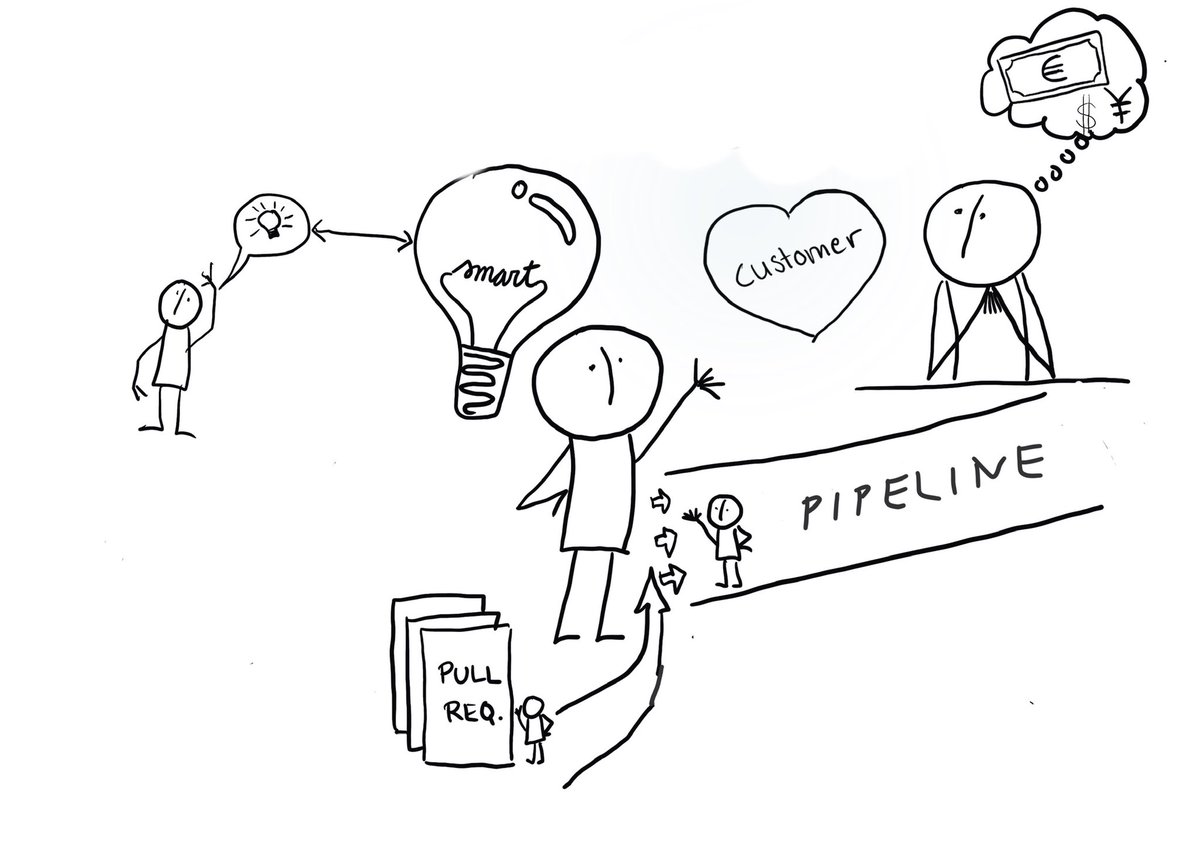 €
$ ¥
smart
customer
PIPELINE
PULL
REQ.